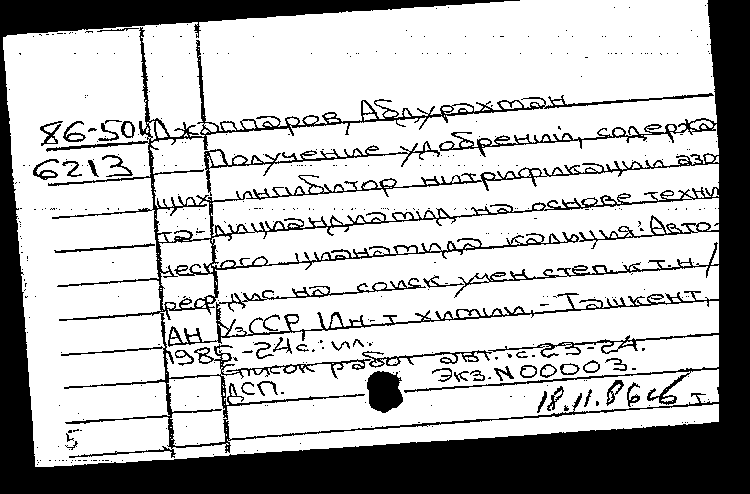 86-50к Джаппаров, Абдурахман.
6213 Получение удобрений, содержа
щих ингибитор нитрификации азо
та-дициандиамид, на основе техни
ческого цианамида кальция: Авто-
реф. дис. на соиск. учен. степ. к.т.н. /
АН УзССР, Ин-т химии, - Ташкент,
1985. - 24с.: ил.
Список работ авт.: с. 23-24.
ДСП. Экз. N 00003.
18.11.86
5